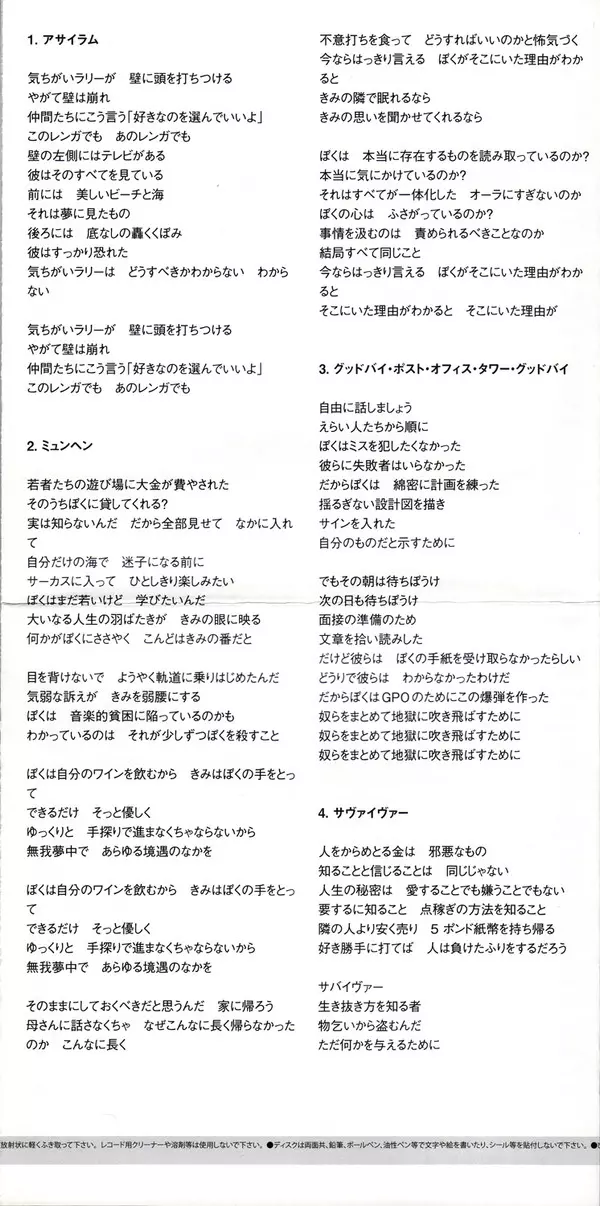 1. アサイラム
気ちがいラリーが　壁に頭を打ちつける
やがて壁は崩れ
仲間たちにこう言う「好きなのを選んでいいよ」
このレンガでも　あのレンガでも
壁の左側にはテレビがある
彼はそのすべてを見ている
前には　美しいビーチと海
それは夢に見たもの
後ろには　底なしの轟くくぼみ
彼はすっかり恐れた
気ちがいラリーは　どうすべきかわからない　わから
ない
気ちがいラリーが　壁に頭を打ちつける
やがて壁は崩れ
仲間たちにこう言う「好きなのを選んでいいよ」
このレンガでも　あのレンガでも
2. ミュンヘン
若者たちの遊び場に大金が費やされた
そのうちぼくに貸してくれる?
実は知らないんだ　だから全部見せて　なかに入れ
て
自分だけの海で　迷子になる前に
サーカスに入って　ひとしきり楽しみたい
ぼくはまだ若いけど　学びたいんだ
大いなる人生の羽ばたきが　きみの眼に映る
何かがぼくにささやく　こんどはきみの番だと
目を背けないで　ようやく軌道に乗りはじめたんだ
気弱な訴えが　きみを弱腰にする
ぼくは　音楽的貧困に陥っているのかも
わかっているのは　それが少しずつぼくを殺すこと
ぼくは自分のワインを飲むから　きみはぼくの手をとっ
て
できるだけ　そっと優しく
ゆっくりと　手探りで進まなくちゃならないから
無我夢中で　あらゆる境遇のなかを
ぼくは自分のワインを飲むから　きみはぼくの手をとっ
て
できるだけ　そっと優しく
ゆっくりと　手探りで進まなくちゃならないから
無我夢中で　あらゆる境遇のなかを
そのままにしておくべきだと思うんだ　家に帰ろう
母さんに話さなくちゃ　なぜこんなに長く帰らなかった
のか　こんなに長く
不意打ちを食って　どうすればいいのかと怖気づく
今ならはっきり言える　ぼくがそこにいた理由がわか
ると
きみの隣で眠れるなら
きみの思いを聞かせてくれるなら
ぼくは　本当に存在するものを読み取っているのか?
本当に気にかけているのか?
それはすべてが一体化した　オーラにすぎないのか
ぼくの心は　ふさがっているのか?
事情を汲むのは　責められるべきことなのか
結局すべて同じこと
今ならはっきり言える　ぼくがそこにいた理由がわか
ると
そこにいた理由がわかると　そこにいた理由が
3. グッドバイ・ポスト・オフィス・タワー・グッドバイ
自由に話しましょう
えらい人たちから順に
ぼくはミスを犯したくなかった
彼らに失敗者はいらなかった
だからぼくは　綿密に計画を練った
揺るぎない設計図を描き
サインを入れた
自分のものだと示すために
でもその朝は待ちぼうけ
次の日も待ちぼうけ
面接の準備のため
文章を拾い読みした
だけど彼らは　ぼくの手紙を受け取らなかったらしい
どうりで彼らは　わからなかったわけだ
だからぼくはGPOのためにこの爆弾を作った
奴らをまとめて地獄に吹き飛ばすために
奴らをまとめて地獄に吹き飛ばすために
奴らをまとめて地獄に吹き飛ばすために
4. サヴァイヴァー
人をからめとる金は　邪悪なもの
知ることと信じることは　同じじゃない
人生の秘密は　愛することでも嫌うことでもない
要するに知ること　点稼ぎの方法を知ること
隣の人より安く売り　5ポンド紙幣を持ち帰る
好き勝手に打てば　人は負けたふりをするだろう
サバイヴァー
生き抜き方を知る者
物乞いから盗むんだ
ただ何かを与えるために
放射状に軽くふき取って下さい。レコード用クリーナーや溶剤等は使用しないで下さい。●ディスクは両面共、鉛筆、ボールペン、油性ペン等で文字や絵を書いたり、シール等を貼付しないで下さい。